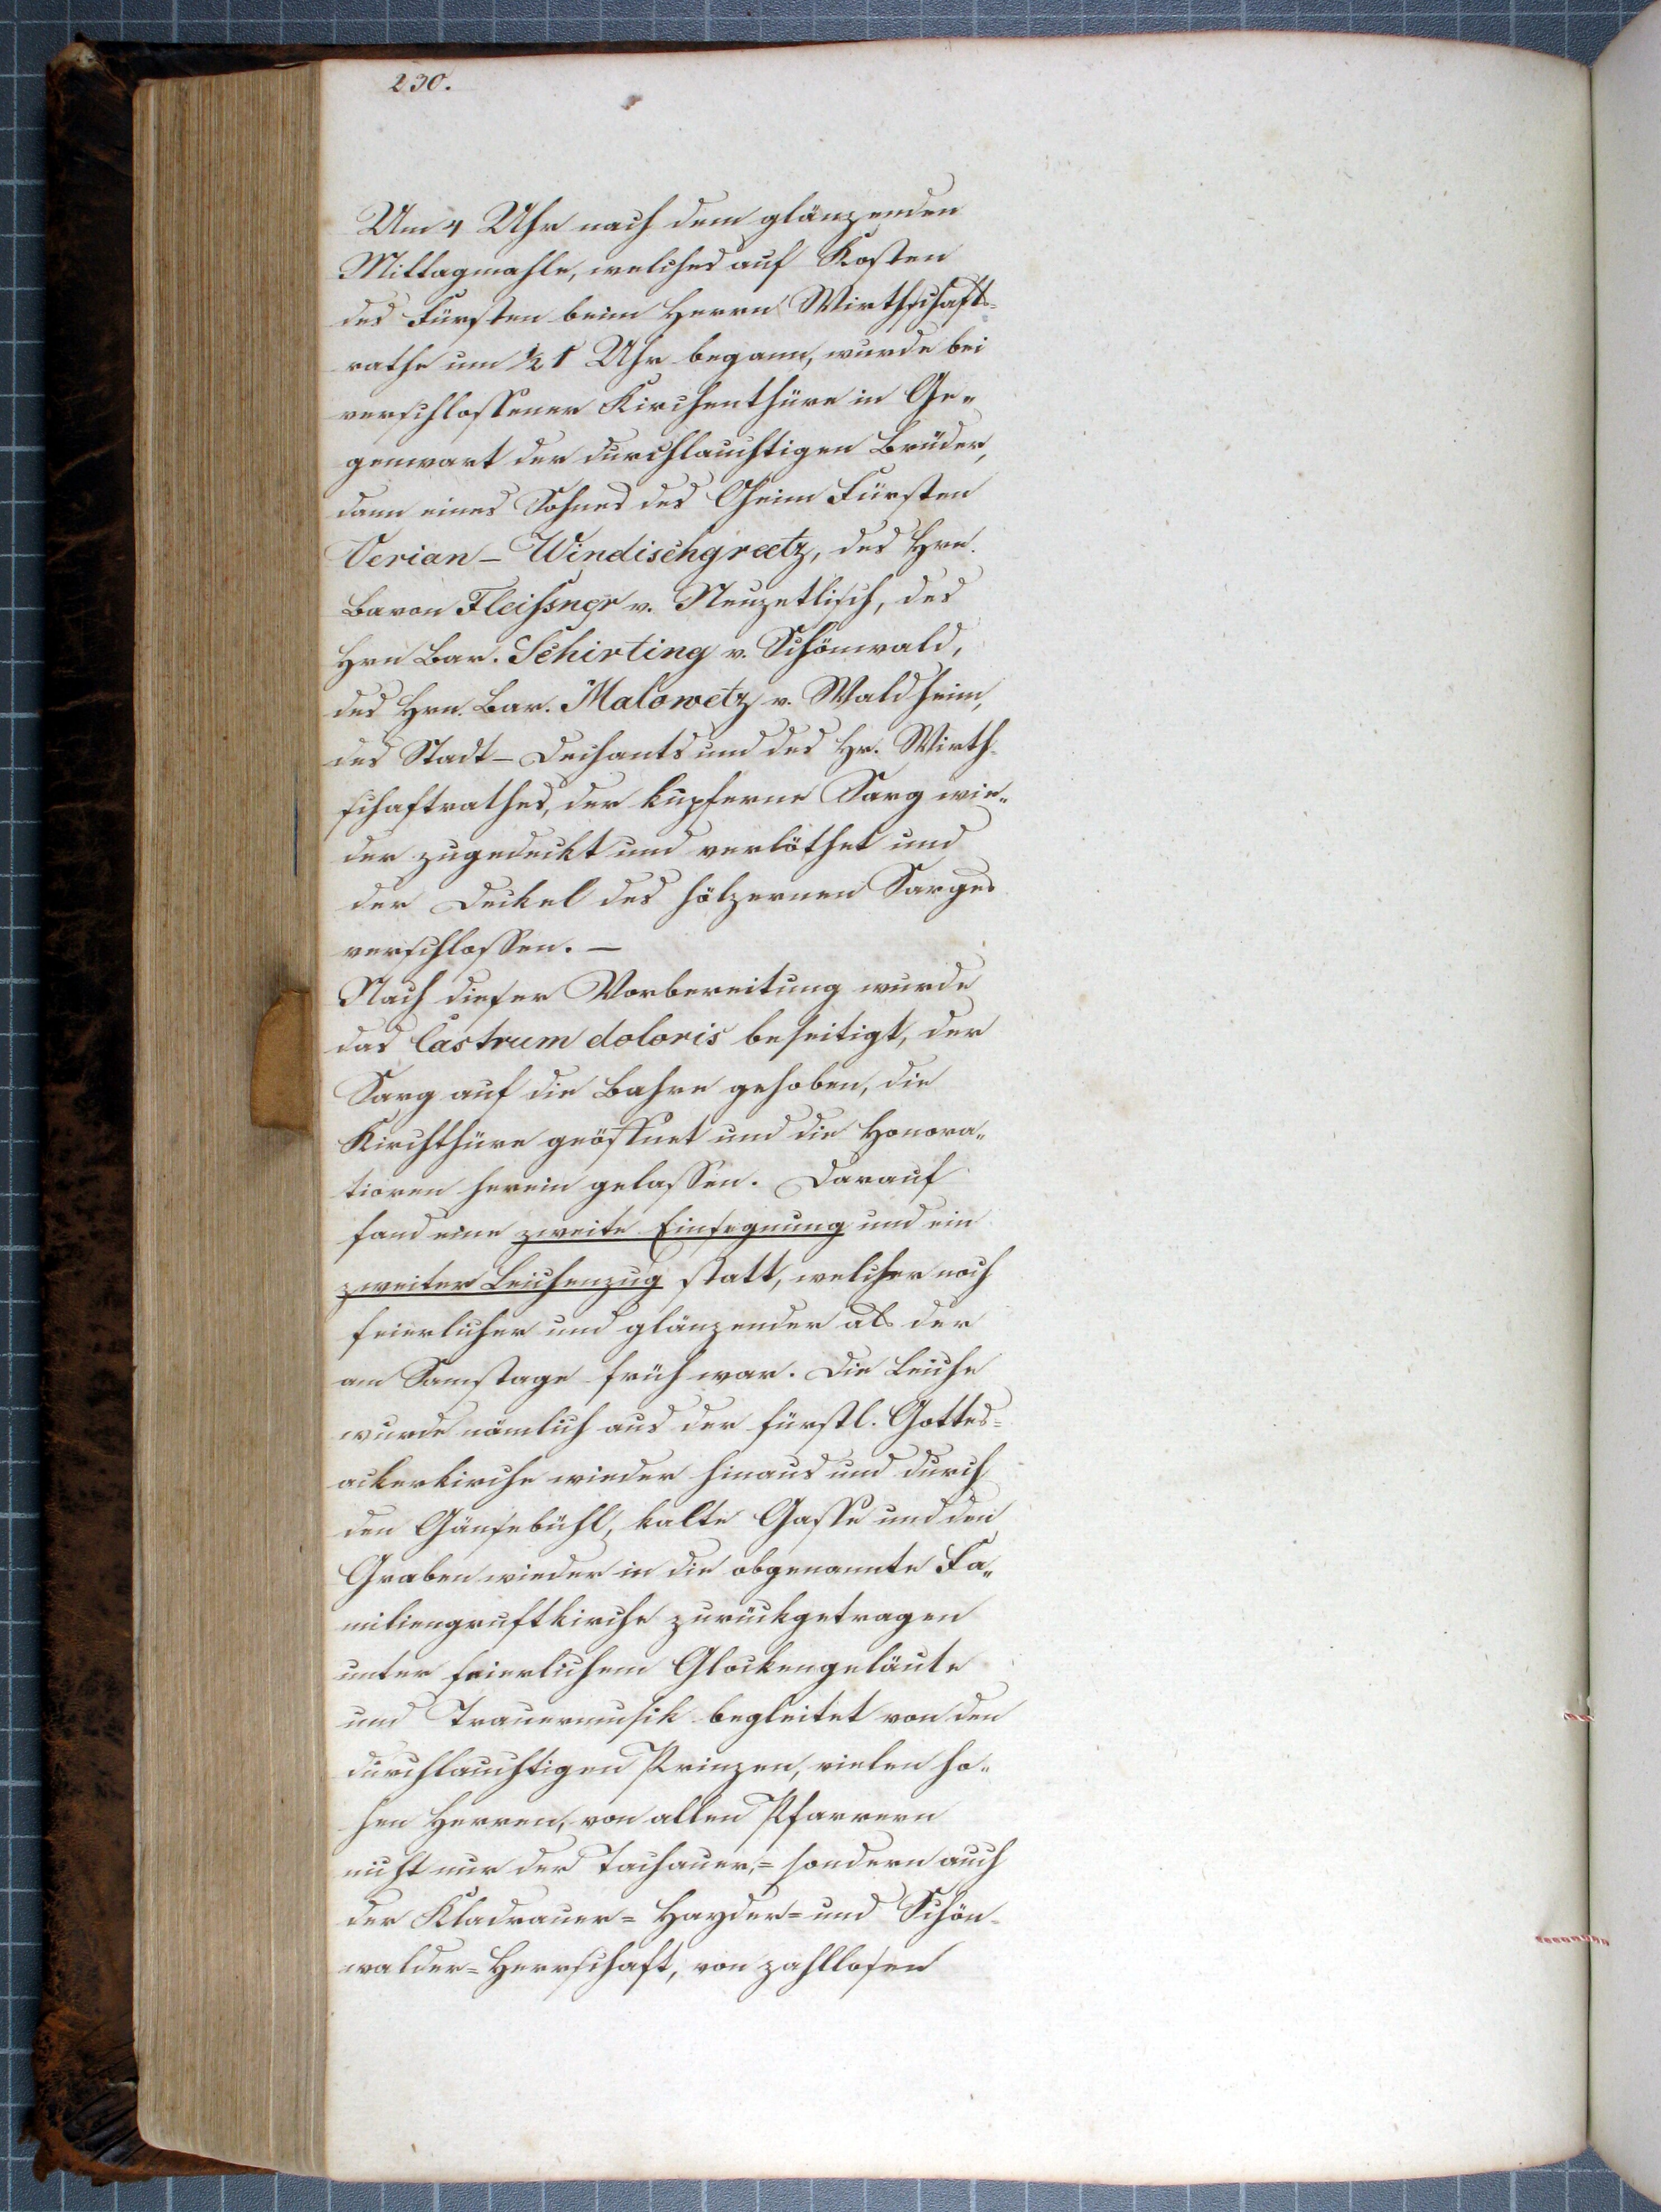 230.
Um 4 Uhr nach dem glänzenden
Mittagmahle, welches auf Kosten
des Fürsten beim Herrn Wirthschafts-
rathe um ½ 1 Uhr begann, wurde bei
verschlossener Kirchenthüre in Ge„
genwart der durchlauchtigen Brüder,
dann eines Sohnes des Oheim Fürsten
Verian – Windischgraetz, des Hrn.
Baron Fleissner v. Neuzetlisch, des
Hrn Bar. Schirting v. Schönwald,
des Hrn. Bar. Malowetz v. Waldheim,
des Stadt – Dechants und des Hr. Wirth-
schaftrathes, der kupferne Sarg wie„
der zugedeckt und verlöthet und
der Deckel des hölzernen Sarges
verschlossen. –
Nach dieser Vorbereitung wurde
das Castrum doloris beseitigt, der
Sarg auf die Bahre gehoben, die
Kirchthüre geöffnet und die Honora„
tioren herein gelassen. Darauf
fand eine zweite Einsegnung und ein
zweiter Leichenzug statt, welcher noch
feierlicher und glänzender als der
am Samstage früh war. Die Leiche
wurde nämlich aus der fürstl. Gottes=
ackerkirche wieder hinaus und durch
den Gänsebühl, kalte Gasse und den
Graben wieder in die obgenannte Fa„
miliengruftkirche zurückgetragen
unter feierlichem Glockengeläute
und Trauermusik begleitet von den
durchlauchtigen Prinzen, vielen ho„
hen Herren, von allen Pfarrern
nicht nur der Tachauer,= sondern auch
der Kladrauer= Hayder= und Schön-
walder= Herrschaft, von zahllosen